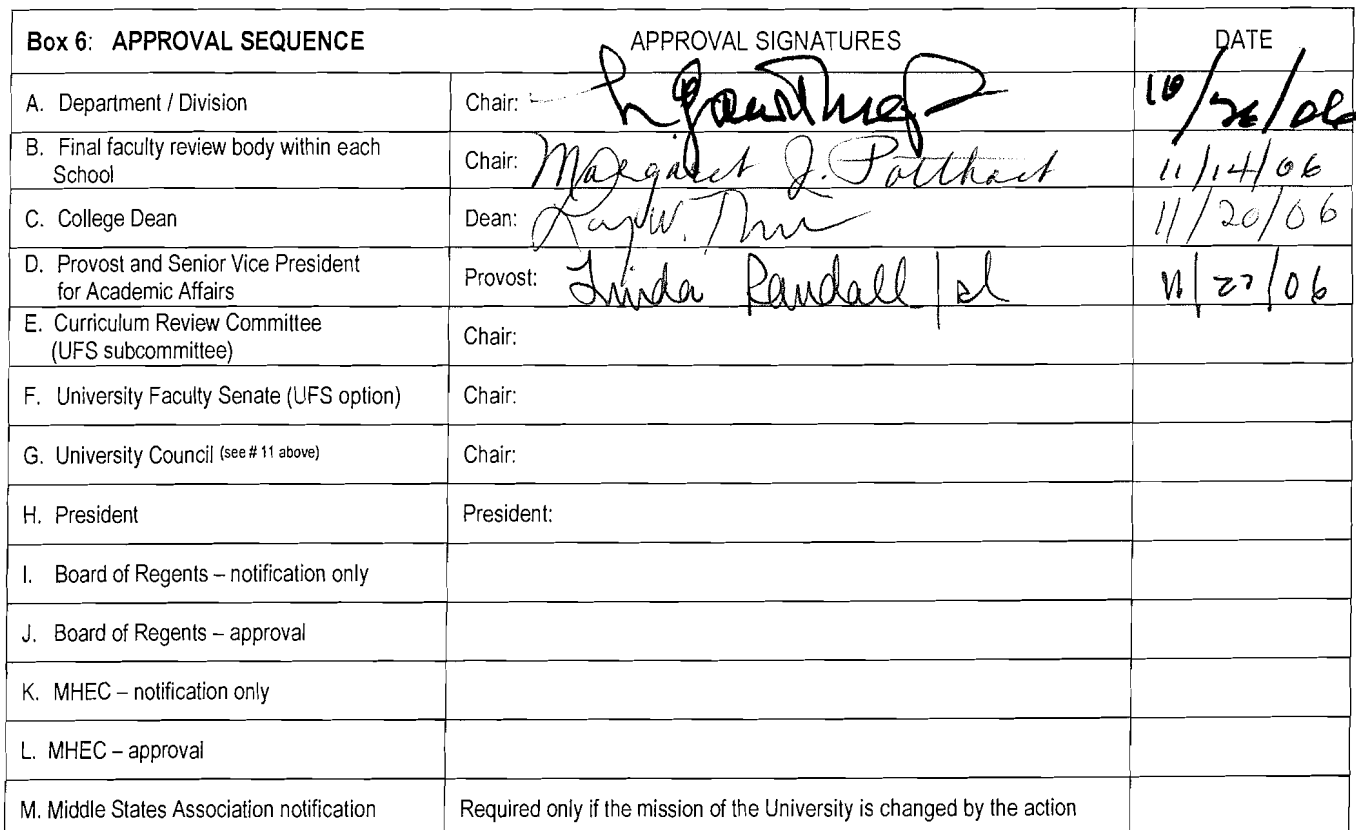 Box 6: APPROVAL SEQUENCE APPROVAL SIGNATURES DATE
A. Department / Division Chair: 10/26/06
B. Final faculty review body within each
School Chair: Margaret J. Potthast 11/14/06
C. College Dean Dean: W. 11/20/06
D. Provost and Senior Vice President
for Academic Affairs Provost: Linda Randall 11/27/06
E. Curriculum Review Committee
(UFS subcommittee) Chair:
F. University Faculty Senate (UFS option) Chair:
G. University Council (see # 11 above) Chair:
H. President President:
I. Board of Regents – notification only
J. Board of Regents – approval
K. MHEC – notification only
L. MHEC – approval
M. Middle States Association notification Required only if the mission of the University is changed by the action